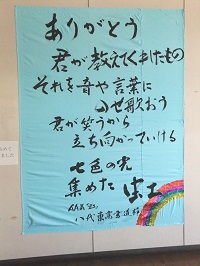 ありがとう
君が教えてくれたもの
それを音や言葉に
のせ歌おう
君が笑うから
立ち向かっていける
七色の光
集めた虹
八代東高書道部